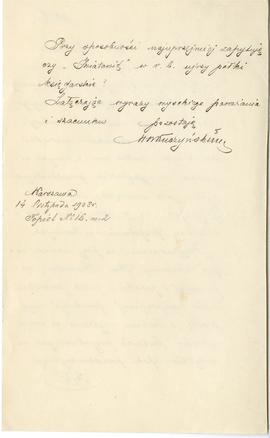 Przy sposobności najuprzejmiej zapytuję
czy „Światowit" w r. b. ujrzy półki
księgarskie?
Załączając wyrazy wysokiego poważania
i szacunku pozostaję
Warszawa
14 Listopada 1903 r.
Topiel № 16. m. 2